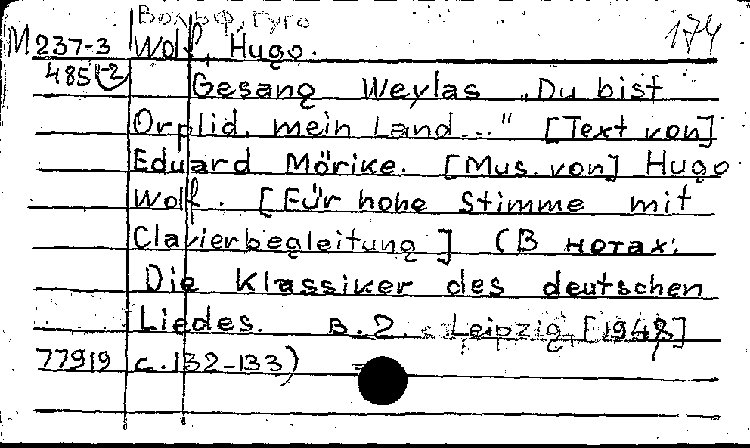 Вольф, Гуго
174
М 237-3 Wolf, Hugo.
485(-2 Gesang Weylas „Du bist
Orplid, mein Land..." [Text von]
Eduard Mörike. [Mus. von] Hugo
Wolf. [Für hohe Stimme mit
Clavierbegleitung] (В нотах:
Die Klassiker des deutschen
Liedes. B. 2. Leipzig, [1948]
77919 с. 132-133)